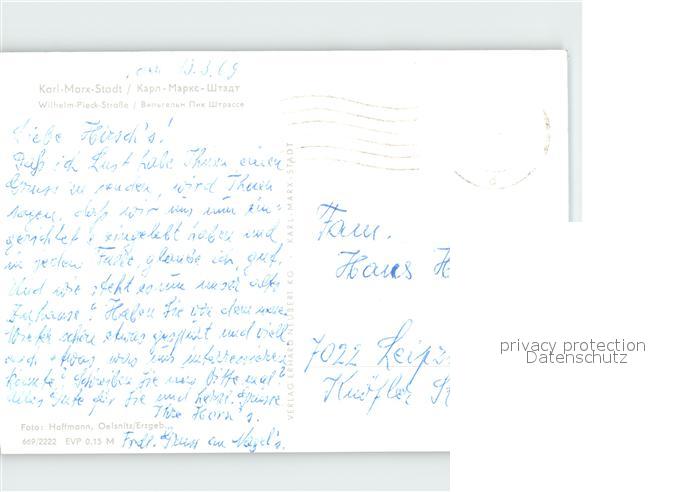 am 13.3.69
Karl-Marx-Stadt / Карл-Маркс-Штадт
Wilhelm-Pieck-Straße / Вильгельм Пик Штрассе
Liebe Hirsch's!
Daß ich Lust habe Ihnen einen
Gruss zu senden, wird Ihnen
sagen, daß wir uns nun ein-
gerichtet & eingelebt haben und
in jedem Falle, glaube ich, gut.
Und wie steht es um unser altes
Zuhause? Haben Sie von dem neuen
schon etwas gespürt und viell.
auch etwas was uns interessieren
könnte? Schreiben Sie uns bitte mal.
Alles Gute für Sie und herzl. Grüsse
Ihre Horn's.
Frdl. Gruss an Nagel's.
Foto: Hoffmann, Oelsnitz/Erzgeb.
669/2222 EVP 0,15 M
VERLAG ERHARD NEUBERT KG KARL-MARX-STADT
Fam.
Hans H
7022 Leipz
privacy protection
Datenschutz